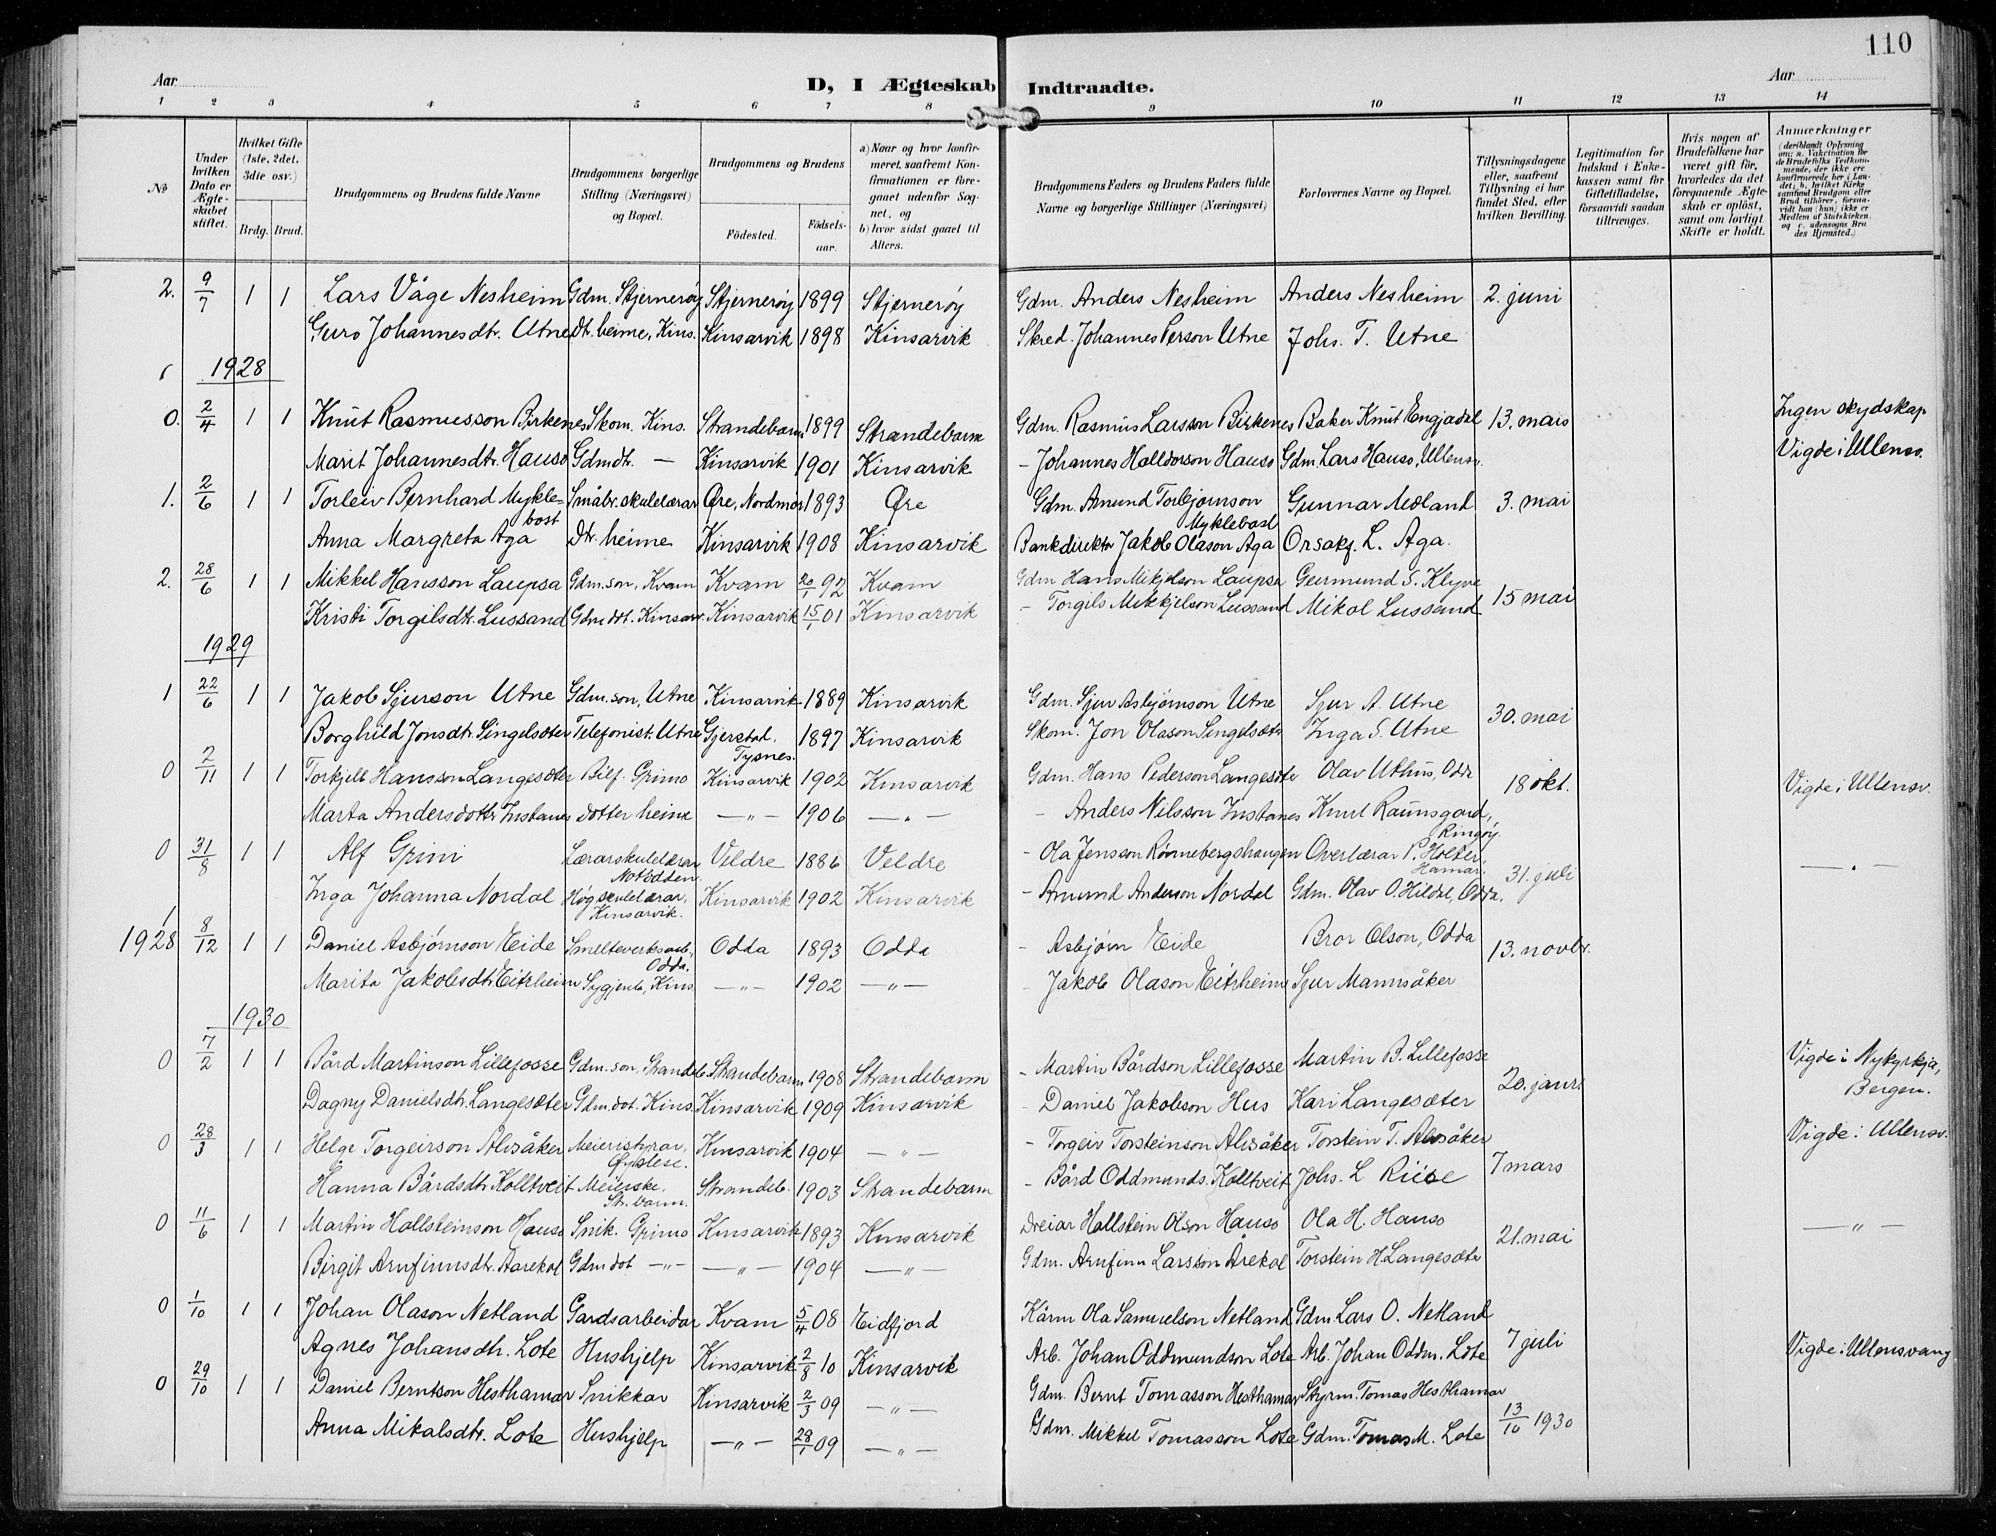 110
Aar
D, I Ægteskab Indtraadte.
Aar
1 2 3 4 5 6 7 8 9 10 11 12 13 14
No
Under hvilken Dato er Ægteskabet stiftet.
Hvilket Gifte (1ste, 2det, 3die osv.)
Brdg. Brud.
Brudgommens og Brudens fulde Navne
Brudgommens borgerlige Stilling (Næringsvei) og Bopæl.
Brudgommens og Brudens
Födested.
Födselsaar.
a) Naar og hvor konfirmeret, saafremt Konfirmationen er foregaaet udenfor Sognet, og
b) hvor sidst gaaet til Alters.
Brudgommens Faders og Brudens Faders fulde Navne og borgerlige Stillinger (Næringsvei)
Forlovernes Navne og Bopæl.
Tillysningsdagene eller, saafremt Tillysning ei har fundet Sted, efter hvilken Bevilling.
Legitimation for Indskud i Enkekassen samt for Giftetilladelse, forsaavidt saadan tiltrænges.
Hvis nogen af Brudefolkene har været gift för, hvorledes da det foregaaende Ægteskab er oplöst, samt om lovligt Skifte er holdt.
Anmærkninger (deriblandt Oplysning om: a. Vakcination for de Brudefolks Vedkommende, der ikke ere konfirmerede her i Landet; b. hvilket Kirkesamfund Brudgom eller Brud tilhörer, forsaavidt han (hun) ikke er Medlem af Statskirken, og c. udensogns Brudes Hjemsted.)
2. 9/7 1 1 Lars Våge Nesheim Gdm. Stjernerøy Stjernerøy 1899 Stjernerøy Gdm. Anders Nesheim Anders Nesheim 2. juni
Guro Johannesdtr. Utne Dtr. heime, Kins. Kinsarvik 1898 Kinsarvik Skred. Johannes Person Utne Johs. T. Utne
1928
0. 2/4 1 1 Knut Rasmusson Birkenes Skom. Kins. Strandebarm 1899 Strandebarm Gdm. Rasmus Larsson Birkenes Baker Knut Engjadal 13. mars Ingen skydskap
Marit Johannesdtr. Hauso Gdmdtr. — Kinsarvik 1901 Kinsarvik - Johannes Halldorson Hauso Gdm. Lars Hauso, Ullensv. Vigde i Ullensv.
1. 2/6 1 1 Torleiv Bernhard Myklebost Småbr. skulelærar Øre, Nordmør 1893 Øre Gdm. Amund Torbjørnson Myklebost Gunnar Mæland 3. mai
Anna Margreta Aga Dtr. heime Kinsarvik 1908 Kinsarvik Bankdirektør Jakob Olason Aga Orsakf. L. Aga.
2. 28/6 1 1 Mikkel Hansson Laupsa Gdm.son, Kvam Kvam 20/1 92 Kvam Gdm Hans Mikjelson Laupsa Gurmund S. Klyve 15 mai
Kristi Torgilsdtr. Lussand Gdm dot. Kinsarv. Kinsarvik 15/1 01 Kinsarvik - Torgils Mikkjelson Lussand Mikal Lussand
1929
1 22/6 1 1 Jakob Sjurson Utne Gdm.son, Utne Kinsarvik 1889 Kinsarvik Gdm. Sjur Asbjørnson Utne Sjur A. Utne 30. mai
Borghild Jonsdtr. Singelsæter Telefonist. Utne Gjerstad, Tysnes. 1897 Kinsarvik Skom. Jon Olason Singelsæter Inga S. Utne
0 2/11 1 1 Torkjell Hansson Langesæter Bilf. Grimo Kinsarvik 1902 Kinsarvik Gdm. Hans Pederson Langesæte Olav Uthus, Odda 18 okt. Vigde i Ullensv.
Marta Andersdotter Instanes dotter heime — " — 1906 — " — - Anders Nilsson Instanes Knut Raunsgard, Ringøy.
0 31/8 1 1 Alf Grini Lærarskulelærar Notodden. Veldre 1886 Veldre - Ola Jensson Rønnebergshaugen Overlærar P. Holter, Hamar. 31. juli — " —
Inga Johanna Nordal Høgskulelærar, Kinsarvik. Kinsarvik 1902 Kinsarvik - Amund Anderson Nordal Gdm. Olav O. Hildal, Odda.
1928 8/12 1 1 Daniel Asbjørnson Eide Smelteverksarb., Odda. Odda 1893 Odda - Asbjørn Eide Bror Olson, Odda 13. novbr.
Marita Jakobsdtr. Eitrheim Sygjenta, Kins. — " — 1902 — " — - Jakob Olason Eitrheim Sjur Mannsåker
1930
0 7/2 1 1 Bård Martinson Lillefosse Gdm.son, Strandeb. Strandebarm 1908 Strandebarm - Martin Bårdson Lillefosse Martin B. Lillefosse 20. januar Vigde i Nykyrkja, Bergen.
Dagny Danielsdtr. Langesæter Gdm dot. Kins. Kinsarvik 1909 Kinsarvik - Daniel Jakobson Hus Kari Langesæter
0 28/3 1 1 Helge Torgeirson Alsåker Meieristyrar, Øystese. Kinsarvik 1904 — " — - Torgeir Torsteinson Alsåker Torstein T. Alsåker 7 mars Vigde i Ullensv.
Hanna Bårdsdtr. Kolltveit Meierske, Str.barm. Strandeb. 1903 Strandebarm - Bård Oddmunds. Kolltveit Johs. L Riise
0 11/6 1 1 Martin Hallsteinson Hauso Snik. Grimo Kinsarvik 1893 Kinsarvik Dreiar Hallstein Olson Hauso Ola H. Hauso 21. mai — " —
Birgit Arnfinnsdtr. Aarekol Gdm dot — " — — " — 1904 — " — Gdm. Arnfinn Larsson Årekol Torstein H Langesæte
0 1/10 1 1 Johan Olason Netland Gardsarbeidar Kvam 5/4 08 Eidfjord Kårm Ola Samuelson Netland Gdm Lars O. Netland 7 juli Vigde i Ullensvang
Agnes Johansdtr. Lote Hushjelp Kinsarvik 2/8 10 Kinsarvik Arb. Johan Oddmundson Lote Arb. Johan Oddm. Lote
0 29/10 1 1 Daniel Berntson Hesthamar Snikkar Kinsarvik 2/3 09 — " — Gdm. Bernt Tomasson Hesthamar Styrm. Tomas Hesthamar 13/10 1930
Anna Mikalsdtr. Lote Hushjelp — " — 28/1 09 — " — Gdm. Mikkel Tomasson Lote Gdm. Tomas M. Lote